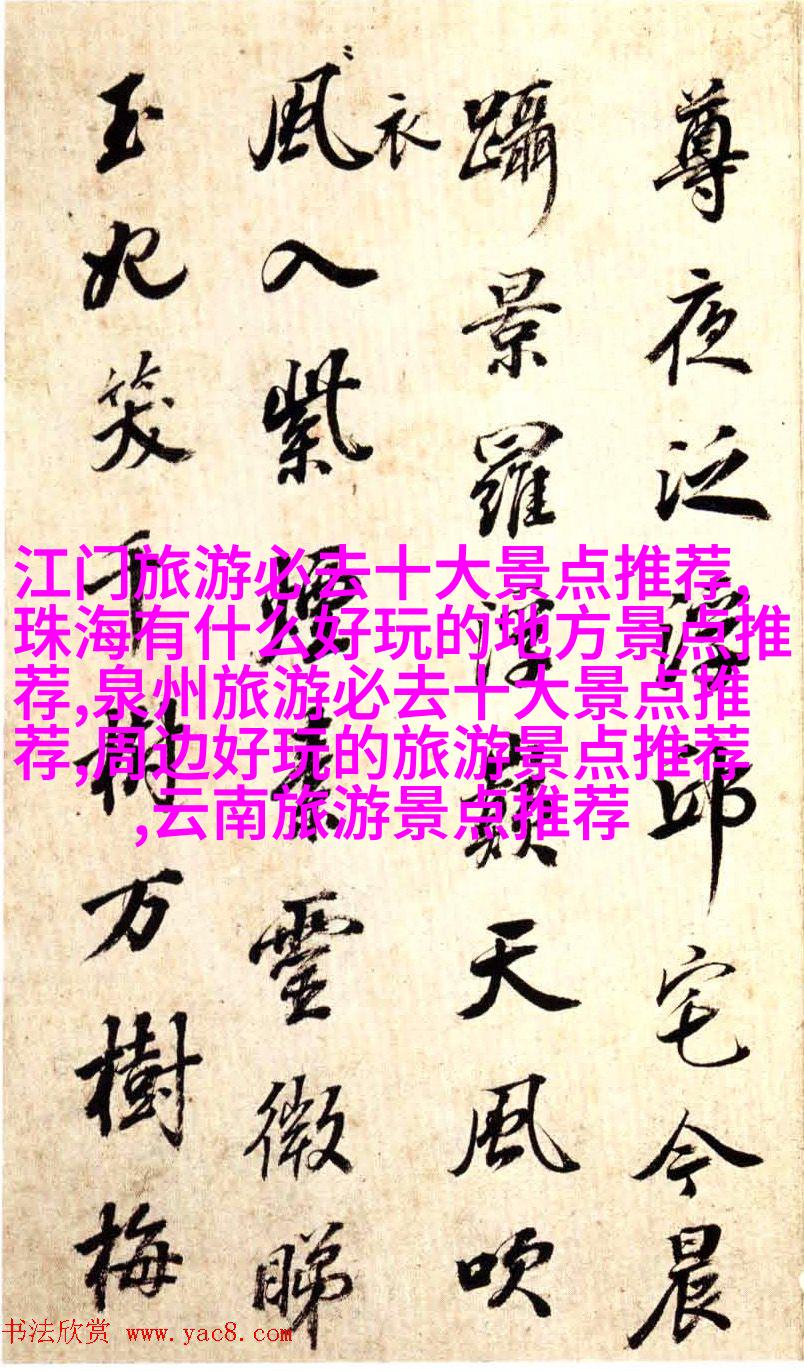 尊夜泛浮邱宅今晨
躡景羅浮巔天風吹
風衣入紫煙素靈微睇
玉妃笑千樹万樹梅
江门旅游必去十大景点推荐,
珠海有什么好玩的地方景点推
荐,泉州旅游必去十大景点推
荐,周边好玩的旅游景点推荐
,云南旅游景点推荐
书法欣赏 www.yac8.com